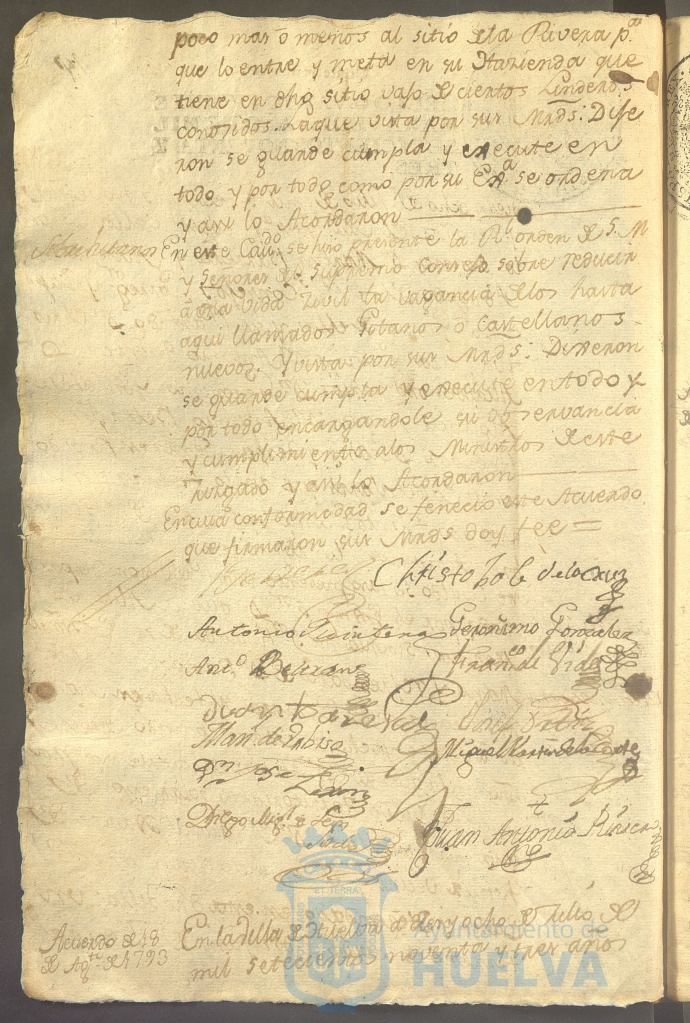 poco mas o menos al sitio de la Rivera p.ª
que lo entre y meta en su Hazienda que
tiene en dho sitio vajo de ciertos Linderos
conosidos. La que vista por sus Mrds: Dije
ron se guarde cumpla y execute en
todo y por todo como por su Exª. se ordena
y assi lo Acordaron
En este Cavdo. se hizo presente la Rl. orden de S. M
y Señores del Supremo Consejo sobre reducir
a una vida civil la vagancia de los hasta
aqui llamados Gitanos o Castellanos
nuevos. Y vista por sus Mrds: Dixeron
se guarde cumpla y execute en todo y
por todo encargandole su observancia
y cumplimiento a los Ministros de este
Juzgado y assi lo Acordaron
En cuia conformedad se fenecio este Acuerdo
que firmaron sus Mrds doy fee =
Christobal de la Cruz
Antonio Quintero Geronimo Gonzalez
Ant.º Beltrane Fran.co de Vida
Man. de
Miguel
Dn Jose
Diego
Juan Antonio
ET TERRÆ
Acuerdo de 18
de Agto de 1793
En la Villa de Huelva a diez y ocho de Julio de
mil setecientos noventa y tres años
Ayuntamiento de
HUELVA